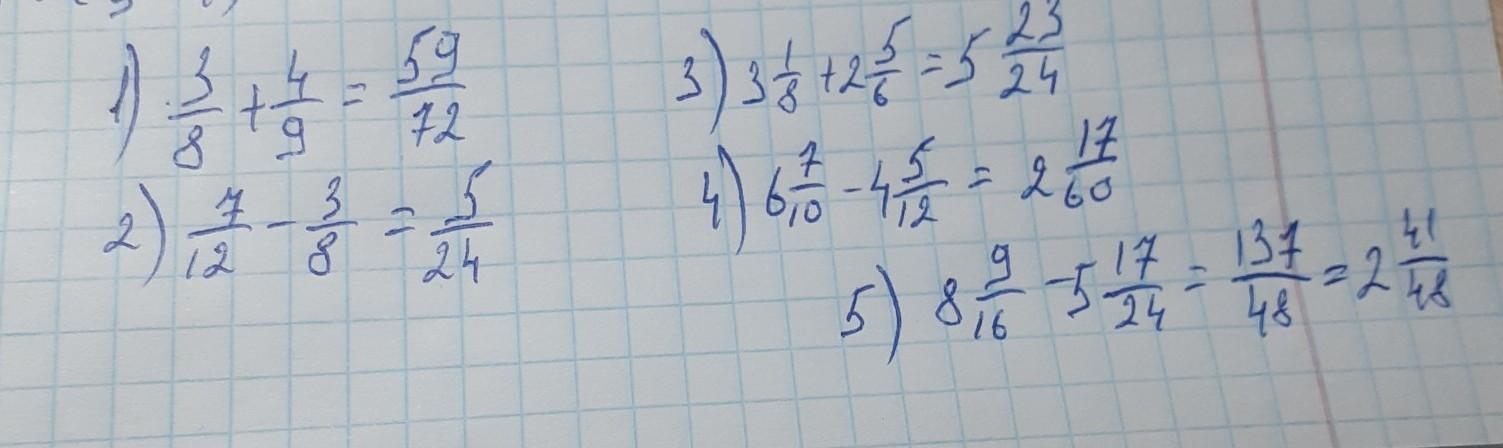 1) 3/8 + 4/9 = 59/72
2) 7/12 - 3/8 = 5/24
3) 3 1/8 + 2 5/6 = 5 23/24
4) 6 7/10 - 4 5/12 = 2 17/60
5) 8 9/16 - 5 17/24 = 137/48 = 2 41/48